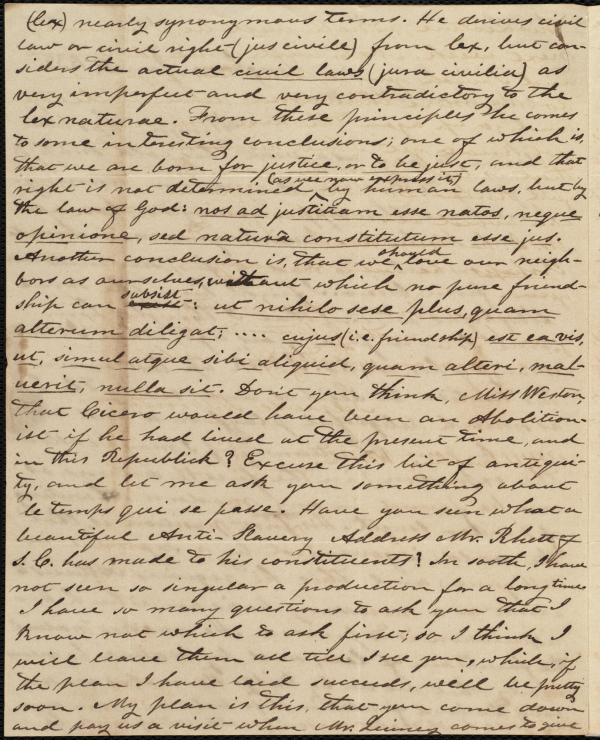 (lex) nearly synonymous terms. He derives civil
law or civil right (jus civile) from lex, but con-
siders the actual civil laws (jura civilia) as
very imperfect and very contradictory to the
lex naturae. From these principles he comes
to some interesting conclusions; one of which is,
that we are born for justice, or to be just, and that
(as we now express it)
right is not determined ^ by human laws, but by
the law of God: nos ad justitiam esse natos, neque
opinione, sed naturâ constitutum esse jus.
Another conclusion is, that we ^should love our neigh-
bors as ourselves, without which no pure friend-
ship can exist subsist: ut nihilo sese plus, quam
alterum diligat; .... cujus (i.e. friendship) est ea vis,
ut, simul atque sibi aliquid, quam alteri, mal-
uerit, nulla sit. Don't you think, Miss Weston,
that Cicero would have been an Abolition-
ist if he had lived at the present time, and
in this Republick? Excuse this bit of antiqui-
ty, and let me ask you something about
le temps qui se passe. Have you seen what a
beautiful Anti-Slavery Address Mr. Rhett of
S. C. has made to his constituents? In sooth, I have
not seen so singular a production for a long time
I have so many questions to ask you that I
know not which to ask first; so I think I
will leave them all till I see you, which, if
the plan I have laid succeeds, will be pretty
soon. My plan is this, that you come down
and pay us a visit when Mr. comes to give